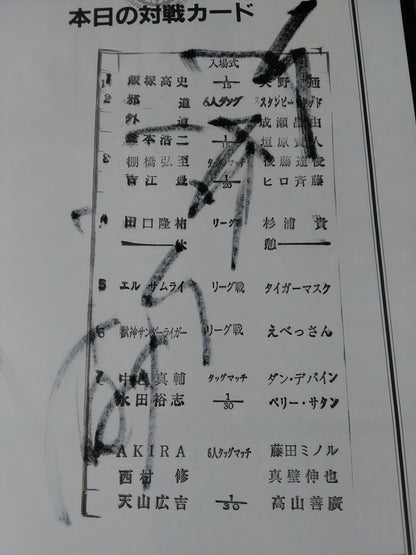 本日の対戦カード
入場式
1 飯塚高史 1/15 矢野通
2 邪道 6人タッグ
外道 成瀬昌由
垣原賢人
3 棚橋弘至 タッグマッチ 後藤達俊
吉江豊 1/20 ヒロ斉藤
4 田口隆祐 リーグ戦 杉浦貴
休憩
5 エル サムライ リーグ戦 タイガーマスク
6 獣神サンダーライガー リーグ戦 えべっさん
7 中邑真輔 タッグマッチ ダン・デバイン
永田裕志 1/30 ペリー・サタン
AKIRA 6人タッグマッチ 藤田ミノル
西村修 真壁伸也
天山広吉 1/30 高山善廣